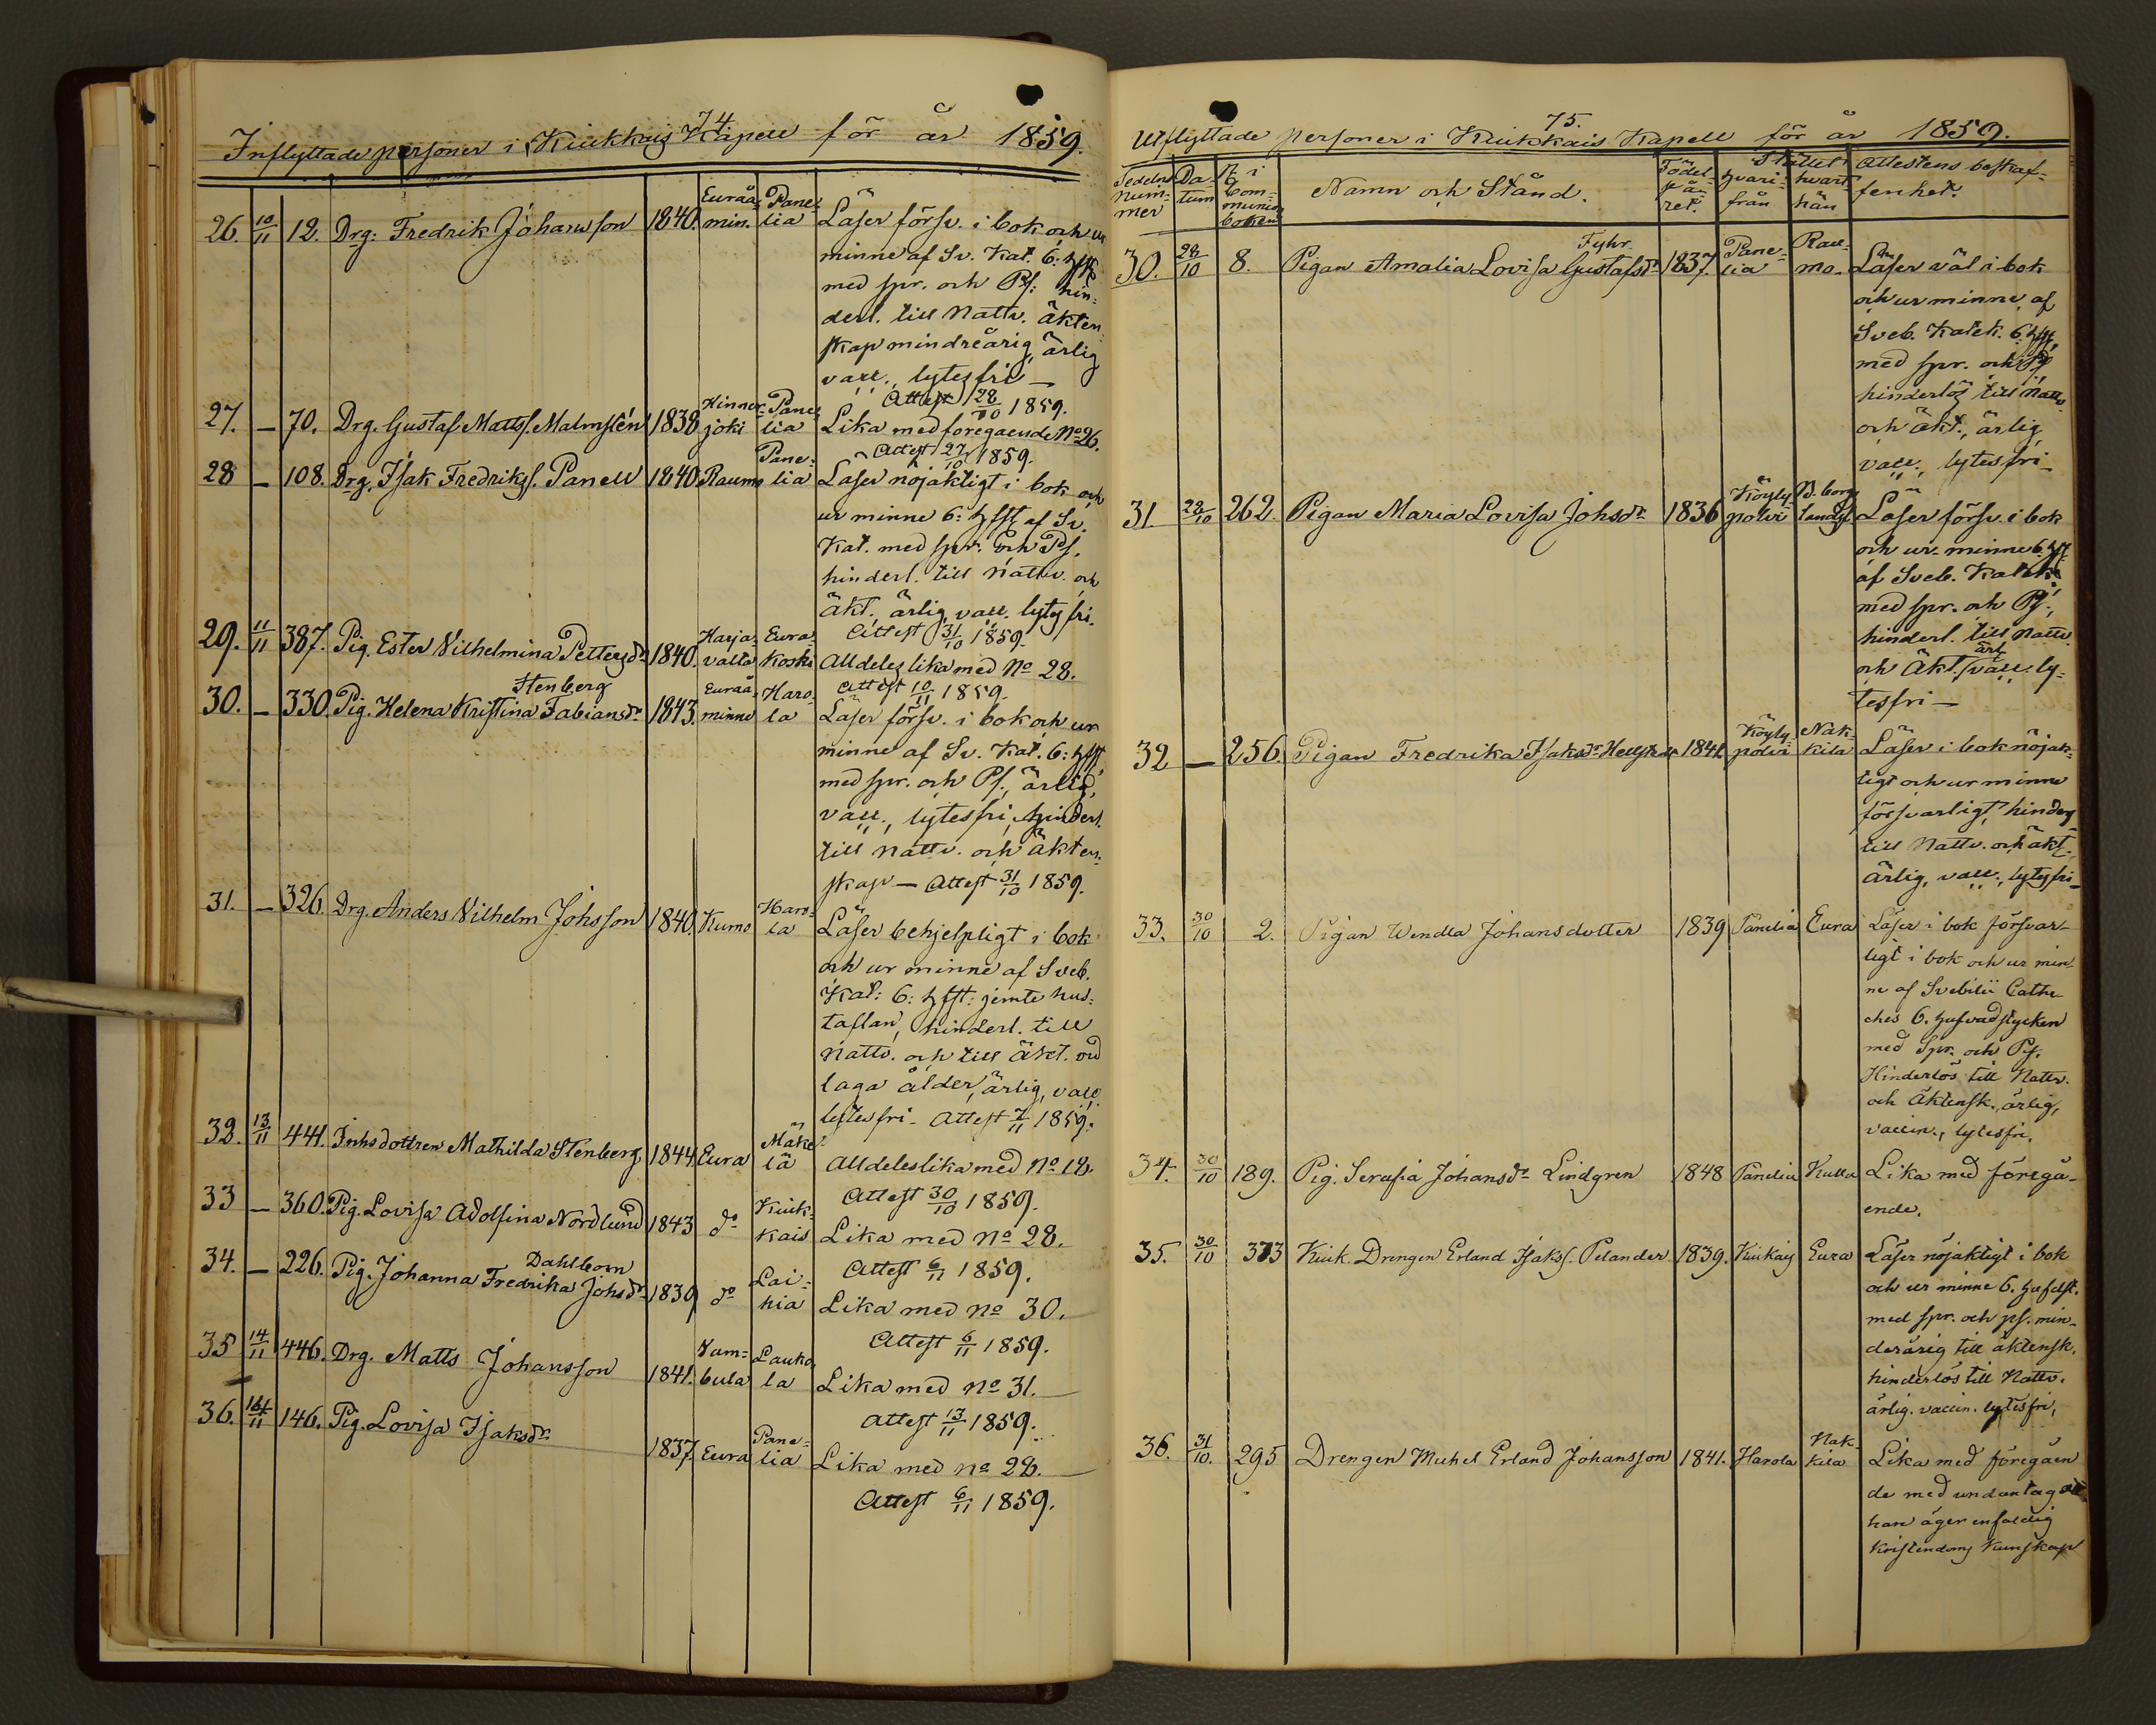 74
Inflyttade personer i Kiukkais Kapell för år 1859.
26. 10/11 12. Drg: Fredrik Johansson 1840. Euraå-min. Pane-lia Läser försv. i bok och ur
minne af Sv. Kat. 6: hfst
med spr. och Ps: hin-
derl. till Nattv. äkten-
skap mindreårig, ärlig
vacc., lytesfri —
Attest 28/10 1859.
27. — 70. Drg. Gustaf Mattss. Malmstén 1838 Hinner-joki Pane-lia Lika med föregaende No 26.
Attest 27/10 1859.
28 — 108. Drg. Isak Fredrikss. Panell 1840. Raumo Pane-lia Läser nöjaktigt i bok och
ur minne 6: hfst af Sv.
Kat. med spr. och Ps.
hinderl. till nattv. och
äkt. ärlig, vacc. lytesfri.
Attest 31/10 1859.
29. 11/11 387. Pig. Ester Vilhelmina Pettersdr 1840. Harja-valta Eura-koski Alldeles lika med No 28.
Attest 10/11 1859.
30. — 330. Pig. Helena Kristina Fabiansdr Stenberg 1843. Euraå-minne Haro-la Läser försv. i bok och ur
minne af Sv. Kat. 6: hfst
med spr. och Ps., ärlig,
vacc., lytesfri, hinderl.
till nattv. och äkten-
skap — Attest 31/10 1859.
31. — 326. Drg. Anders Vilhelm Johsson 1840. Kumo Haro-la Läser behjelpligt i bok
och ur minne af Sveb.
Kat: 6: hfst: jemte hus-
taflan, hinderl. till
nattv. och till äkt. vid
laga ålder, ärlig, vacc.
lytesfri - Attest 7/11 1859.
32. 13/11 441. Inhsdottren Mathilda Stenberg 1844 Eura Mäke-lä Alldeles lika med No 18.
Attest 30/10 1859.
33 — 360. Pig. Lovisa Adolfina Nordlund 1843 do Kiuk-kais Lika med No 28.
Attest 6/11 1859.
34. — 226. Pig. Johanna Fredrika Johsdr Dahlbom 1839 do Lai-hia Lika med No 30.
Attest 6/11 1859.
35 14/11 446. Drg. Matts Johansson 1841. Lauko-la Lika med No 31.
Attest 13/11 1859.
36. 14/11 146. Pig. Lovisa Isaksdr 1837. Eura Pane-lia Lika med No 28.
Attest 6/11 1859.
75.
Utflyttade personer i Kiukkais Kapell för år 1859.
Sedelns num-mer Da-tum No i Com-munion boken Namn och Stånd. Födel-se året. Stället hvari-från hvart-hän Attestens beskaf-
fenhet.
30. 28/10 8. Pigan Amalia Lovisa Gustafsdr Fyhr 1837. Pane-lia Rau-mo. Läser väl i bok
och ur minne af
Sveb. Katek. 6. hfst,
med spr. och Ps
hinderlös till Nattv.
och äkt., ärlig
vacc., lytesfri —
31. 28/10 262. Pigan Maria Lovisa Johsdr 1836 Köyly-polvi B.borgs landsf. Läser försv. i bok
och ur minne 6. hfst
af Sveb. Katek.
med spr. och Ps.,
hinderl. till Nattv.
och äkt. ärl. vacc. ly-
tesfri —
32 — 256. Pigan Fredrika Isaksdr 1841. Köyly-polvi Nak-kila Läser i bok nöjak-
tigt och ur minne
försvarligt, hinders
till Nattv. och äkt.
ärlig, vacc., lytesfri —
33. 30/10 2. Pigan Wendla Johansdotter 1839 Panelia Eura Läser i bok försvar-
ligt i bok och ur min-
ne af Svebilii Cathe-
ches 6. hufvudstycken
med Spr. och Ps.
Hinderlös till Nattv.
och Äktensk., ärlig,
vaccin., lytesfri.
34. 30/10 189. Pig. Serafia Johansdr Lindgren 1848 Panelia Kulla Lika med föregå-
ende.
35. 30/10 373 Kiuk. Drengen Erland Isakss. Pelander 1839. Kiukais Eura Läser nöjaktigt i bok
och ur minne 6. hufdst.
med spr. och ps. min-
derårig till äktensk.
hinderlös till Nattv.
ärlig. vaccin. lytesfri,
36. 31/10. 295 Drengen Michel Erland Johansson 1841. Harola Nak-kila Lika med föregåen
de med undantag att
han äger enfaldig
Kristendoms Kunskap